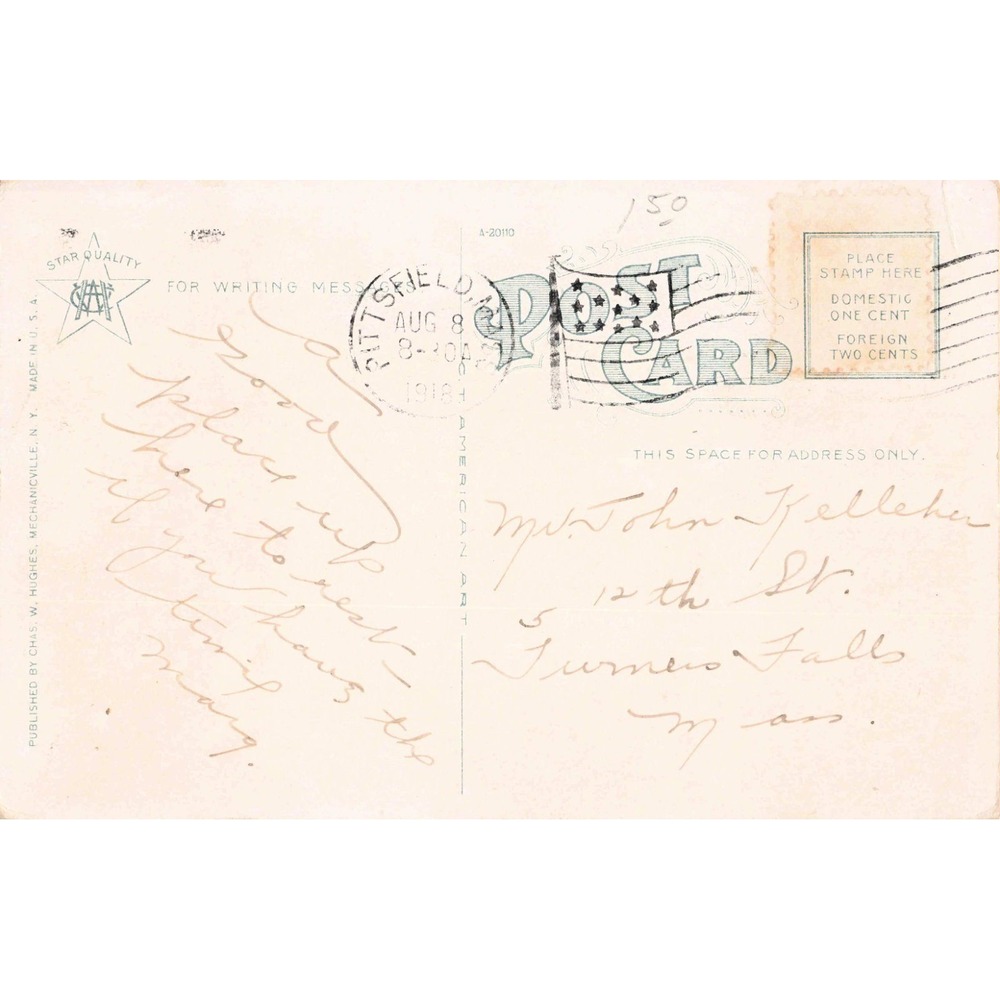 150
A-20110
STAR QUALITY
FOR WRITING MESSAGES
POST CARD
PITTSFIELD, M
AUG 8
8-30A
1918
PLACE
STAMP HERE
DOMESTIC
ONE CENT
FOREIGN
TWO CENTS
THIS SPACE FOR ADDRESS ONLY.
PUBLISHED BY CHAS. W. HUGHES, MECHANICVILLE, N. Y. MADE IN U. S. A.
AMERICAN ART
a
good
place up
here to rest
if you have the
time
Mary.
Mr. John Kelleher
5 12th St.
Turners Falls
Mass.